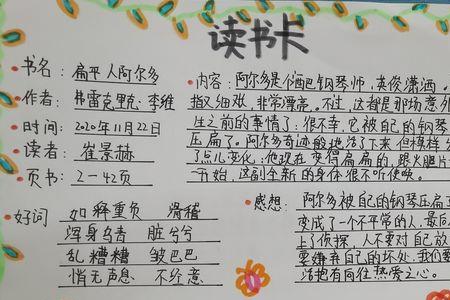 读书卡
书名：扁平人阿尔多
作者：弗雷克里克·李维
时间：2020年11月22日
读者：崔景赫
页书：2－42页
好词 如释重负 滑稽
浑身乌青 脏兮兮
乱糟糟 皱巴巴
悄无声息 不经意
内容：阿尔多是个酒巴钢琴师，英俊潇洒。
指又细又 非常漂亮。不过，这都是那场意外
生之前的事情了：很不幸，它被自己的钢琴
压扁了。阿尔多奇迹般地活了下来但模样
了点儿变化：他现在变得扁扁的，跟火腿片
一开始，这副全新的身体很不听使唤。
感想：阿尔多被自己的钢琴压扁
变成了一个不平常的人，最后
上了侦探，人不要对自己放
要嫌弃自己的坏处，我们要
活抱有向往热爱之心。